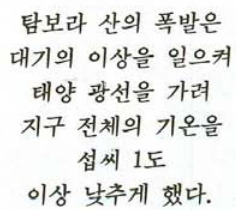 탐보라 산의 폭발은
대기의 이상을 일으켜
태양 광선을 가려
지구 전체의 기온을
섭씨 1도
이상 낮추게 했다.